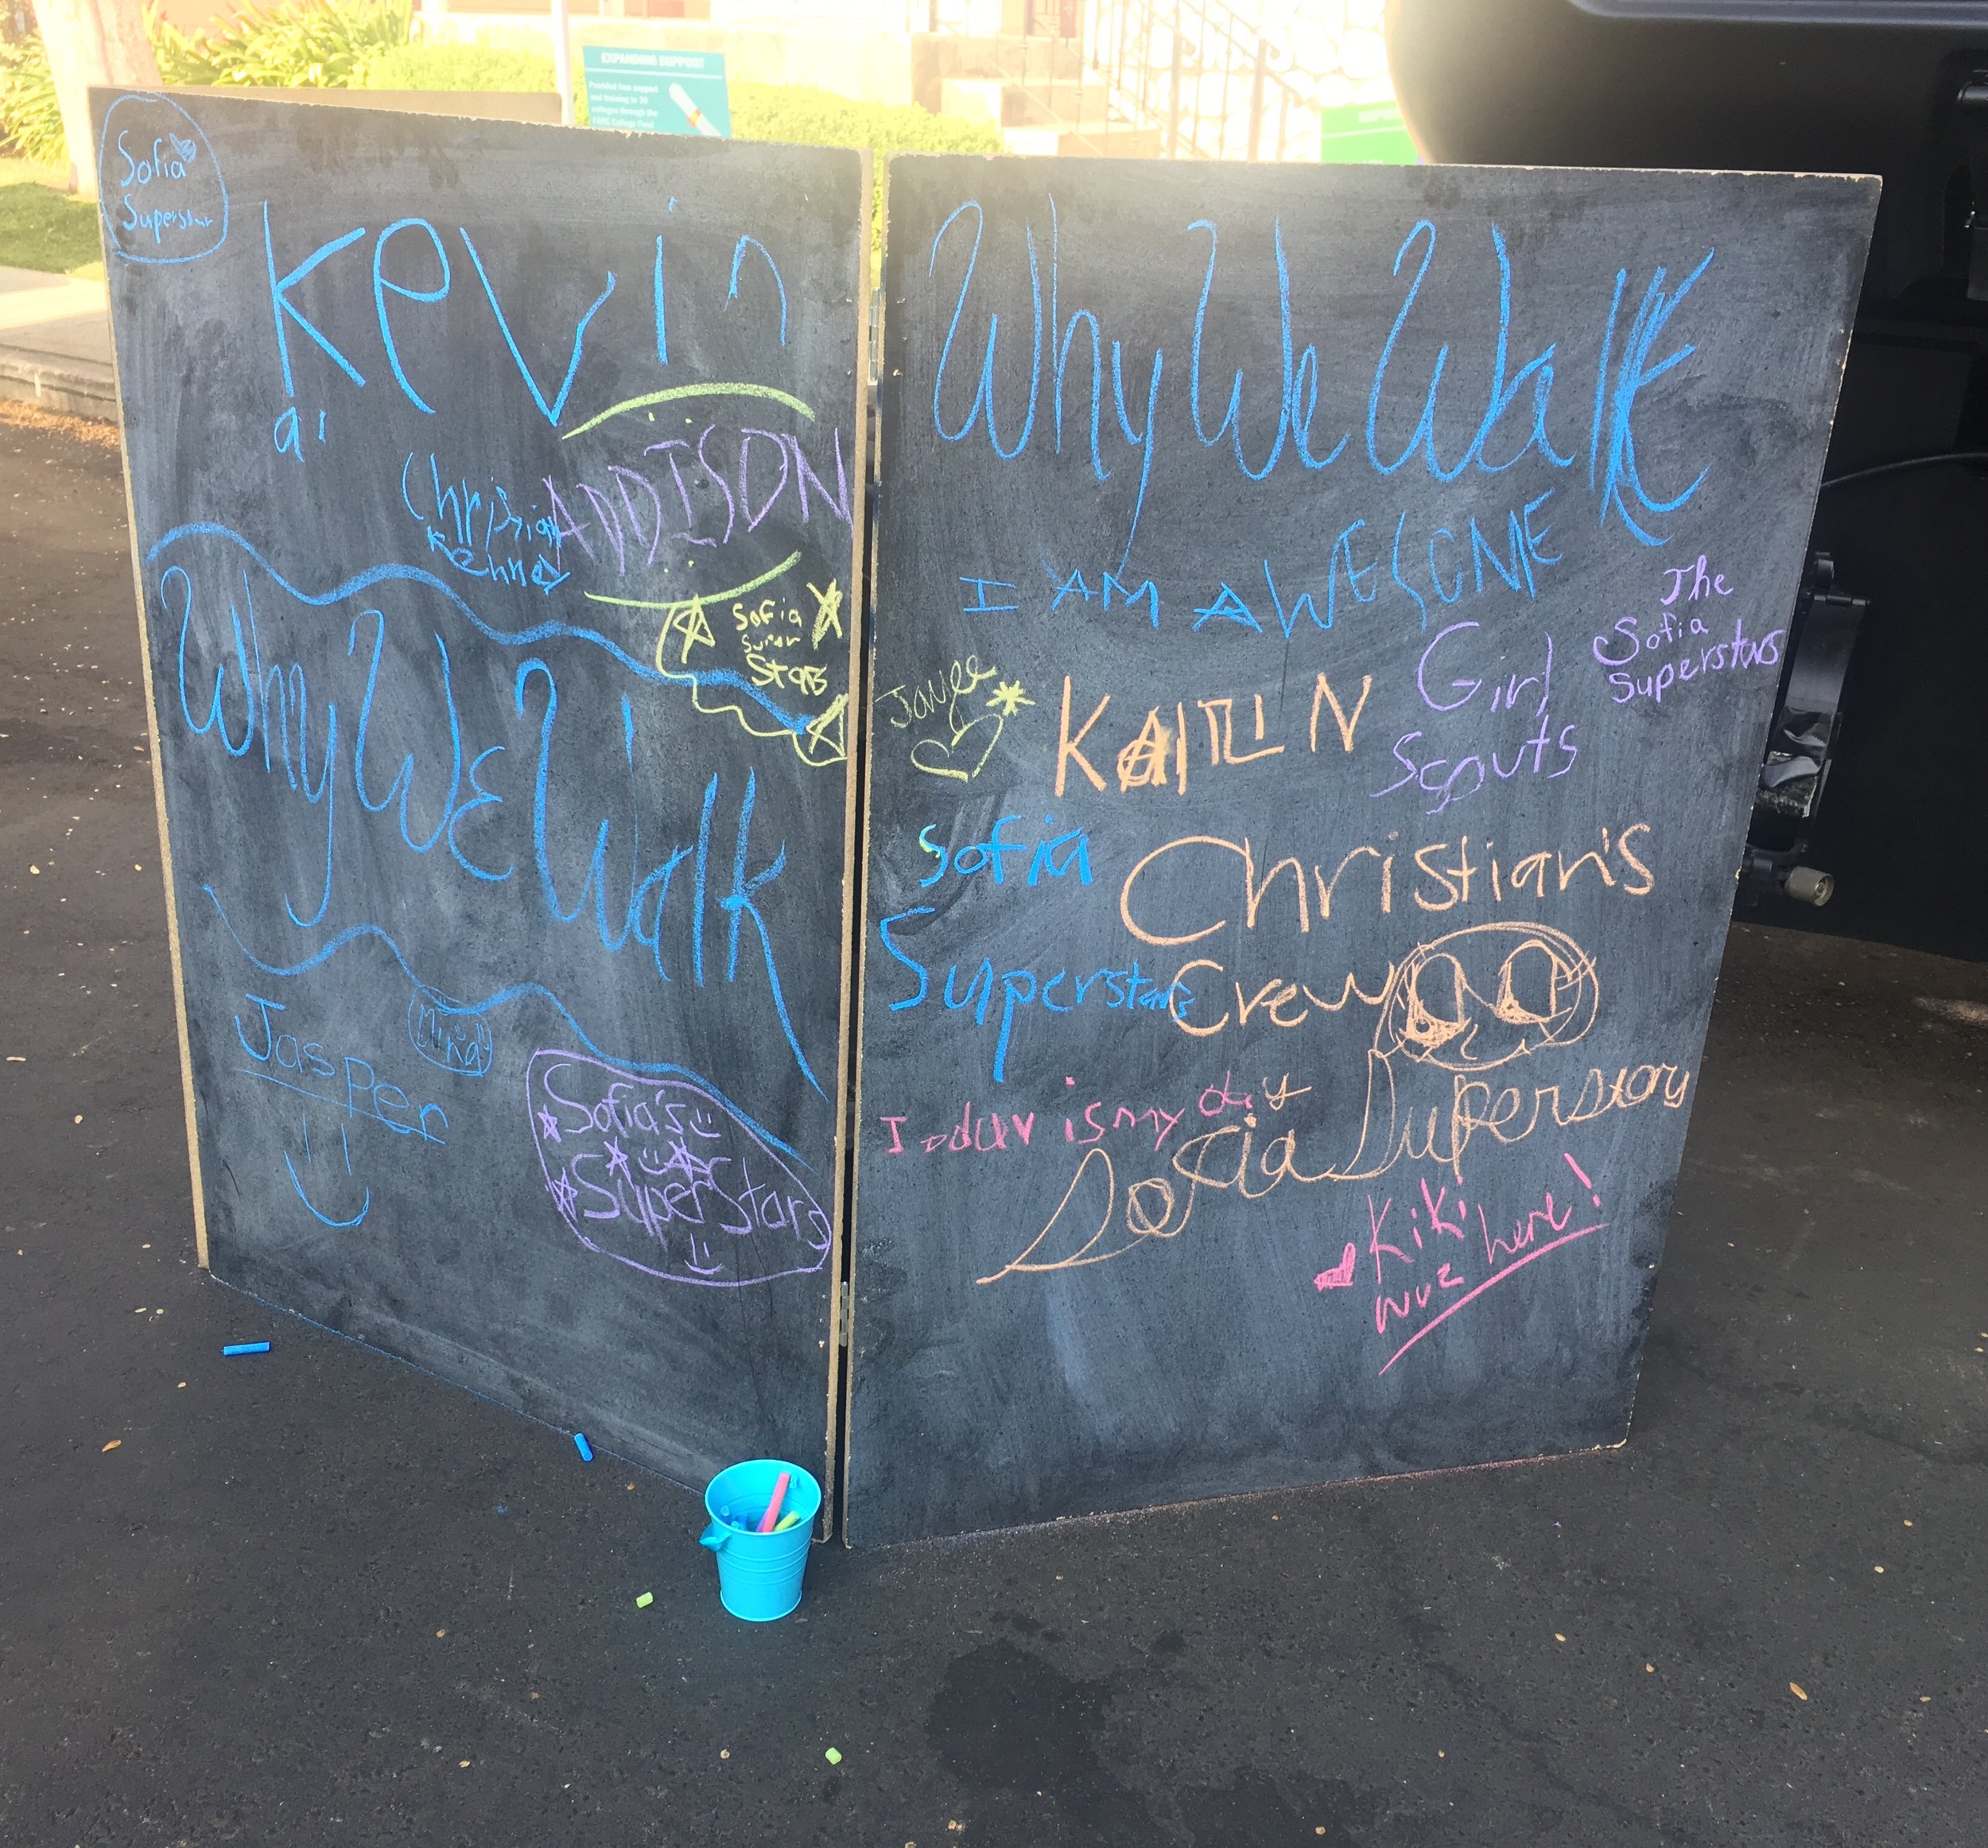 EXPANDING SUPPORT
Provided free support
and training to 30
colleges through the
Sofia
Superstar
Kevin
ai
Christian
Kenney
ADDISON
Sofia
Super
Stars
Why We Walk
Jasper
Sofia's
SuperStars
Why We Walk
I AM AWESOME
The
Sofia
Superstars
Girl
Scouts
Jayce
KAITLIN
Sofia
Superstars
Christian's
Crew
is my
Sofia Superstory
Kiki
wuz here!